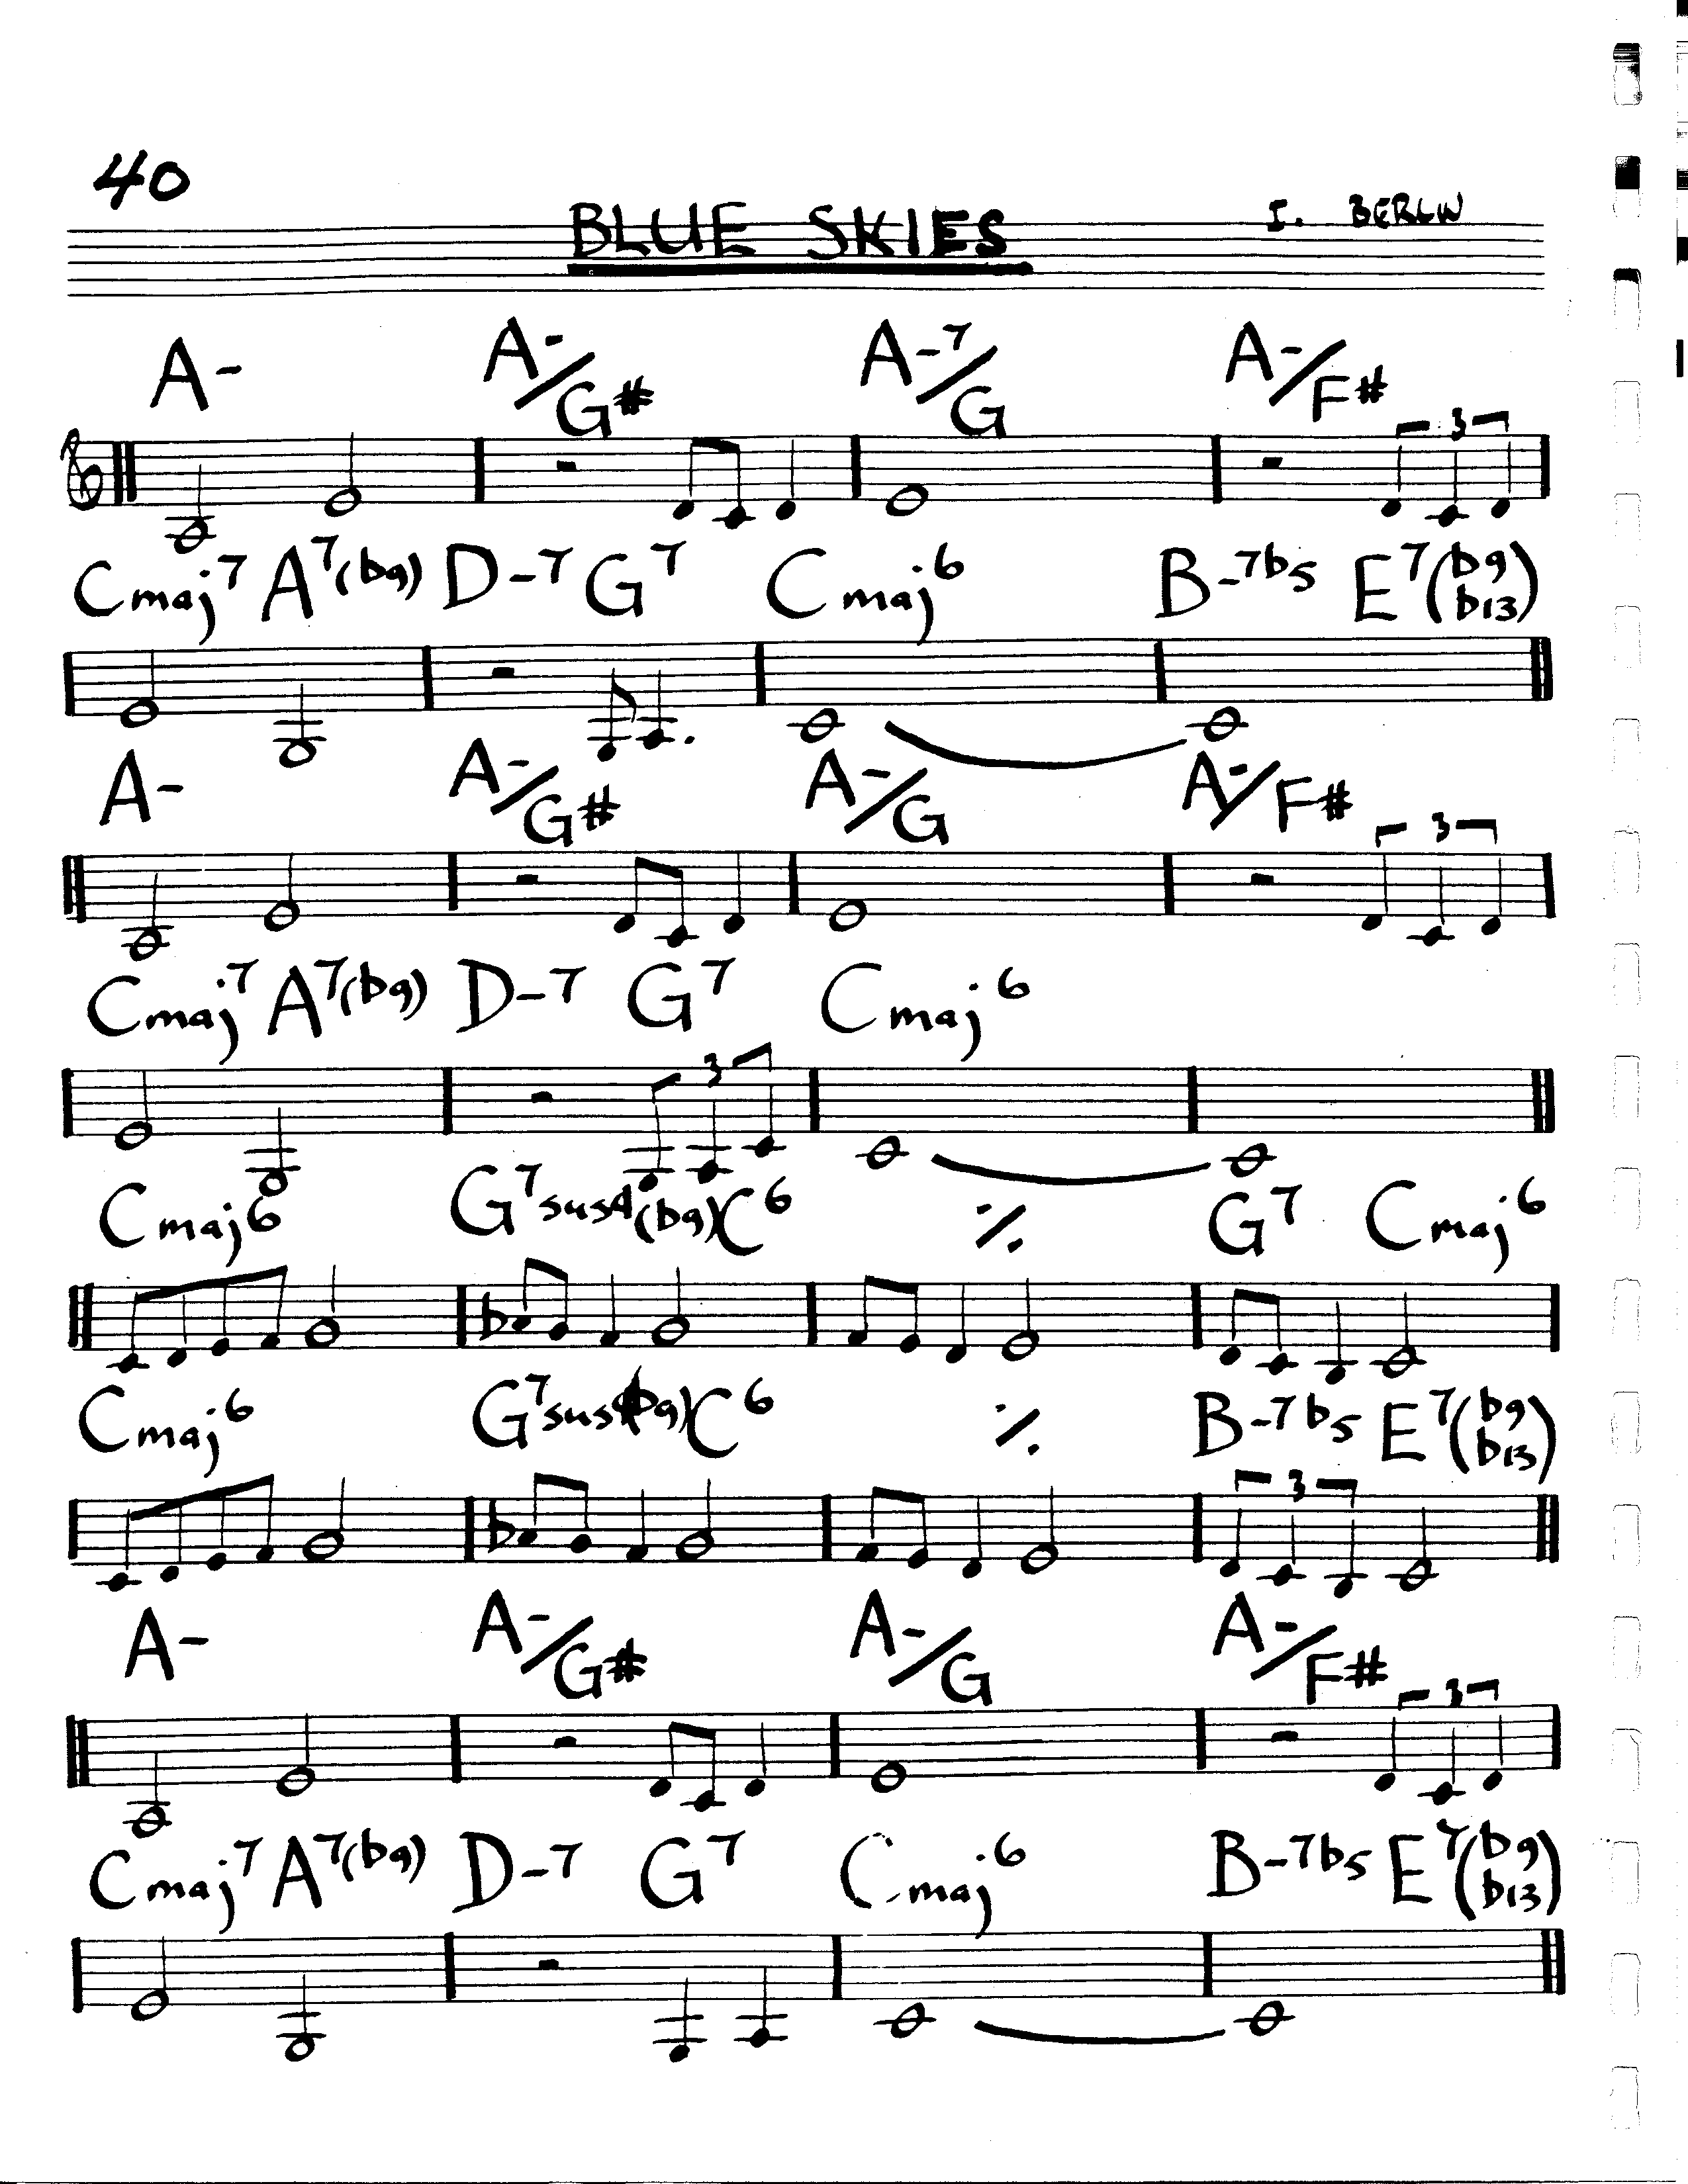 40
BLUE SKIES
I. BERLIN
A- A-/G# A-7/G A-/F#
3
Cmaj7 A7(b9) D-7 G7 Cmaj6 B-7b5 E7(b9 b13)
A- A-/G# A-/G A-/F#
3
Cmaj7 A7(b9) D-7 G7 Cmaj6
3
Cmaj6 G7sus4(b9) C6 ٪ G7 Cmaj6
Cmaj6 G7sus(b9) C6 ٪ B-7b5 E7(b9 b13)
3
A- A-/G# A-/G A-/F#
3
Cmaj7 A7(b9) D-7 G7 Cmaj6 B-7b5 E7(b9 b13)